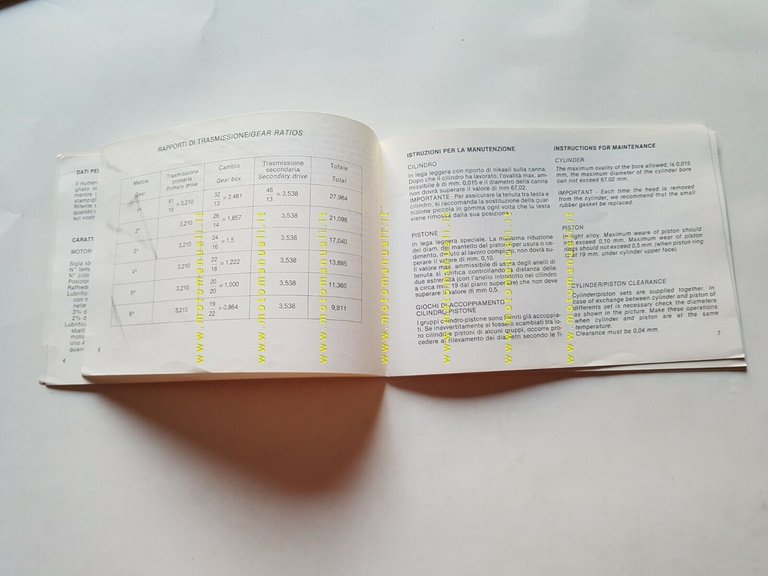 DATI PE
Il numer
4
RAPPORTI DI TRASMISSIONE/GEAR RATIOS
Marcia Gear
Trasmissione primaria Primary drive
Cambio Gear box
Trasmissione secondaria Secondary drive
Totale Total
1ª 61/19 = 3,210 32/13 = 2,461 46/13 = 3,538 27,964
2ª 3,210 26/14 = 1,857 3,538 21,098
3ª 3,210 24/16 = 1,5 3,538 17,040
4ª 3,210 22/18 = 1,222 3,538 13,885
5ª 3,210 20/20 = 1,000 3,538 11,360
6ª 3,210 19/22 = 0,864 3,538 9,811
6
ISTRUZIONI PER LA MANUTENZIONE
CILINDRO
In lega leggera con riporto di nikasil sulla canna.
Dopo che il cilindro ha lavorato, l'ovalità max. am-
missibile è di mm. 0,015 e il diametro della canna
non dovrà superare il valore di mm 67,02.
IMPORTANTE: Per assicurare la tenuta fra testa e
cilindro, si raccomanda la sostituzione della guar-
nizione piccola in gomma ogni volta che la testa
viene rimossa dalla sua posizione.
PISTONE
In lega leggera speciale. La massima riduzione
del diam. del mantello del pistone per usura o ce-
dimento, dovuto al lavoro compiuto, non dovrà su-
perare il valore di mm. 0,10.
Il valore max. ammissibile di usura degli anelli di
tenuta si verifica controllando la distanza delle
due estremità (con l'anello introdotto nel cilindro
a circa mm 19 dal piano superiore) che non deve
superare il valore di mm 0,5.
GIOCHI DI ACCOPPIAMENTO
CILINDRO-PISTONE
I gruppi cilindro-pistone sono forniti già accoppia-
ti. Se inavvertitamente si fossero scambiati tra lo-
ro cilindri e pistoni di alcuni gruppi, occorre pro-
cedere al rilevamento dei diametri secondo le fi-
INSTRUCTIONS FOR MAINTENANCE
CYLINDER
The maximum ovality of the bore allowed, is 0,015
mm, the maximum diameter of the cylinder bore
can not exceed 67,02 mm.
IMPORTANT - Each time the head is removed
from the cylinder, we recommend that the small
rubber gasket be replaced.
PISTON
In light alloy. Maximum weare of piston should
not exceed 0,10 mm. Maximum wear of piston
rings should not exceed 0,5 mm. (when piston ring
is at 19 mm. under cylinder upper face).
CYLINDER/PISTON CLEARANCE
Cylinder/piston sets are supplied together. In
case of exchange between cylinder and piston of
different set is necessary check the diameters
as shown in the picture. Make these operations
when cylinder and piston are at the same
temperature.
Clearance must be 0,04 mm.
7
www.motomanuali.it
www.motomanuali.it
www.motomanuali.it
www.motomanuali.it
www.motomanuali.it
www.motomanuali.it
www.motomanuali.it